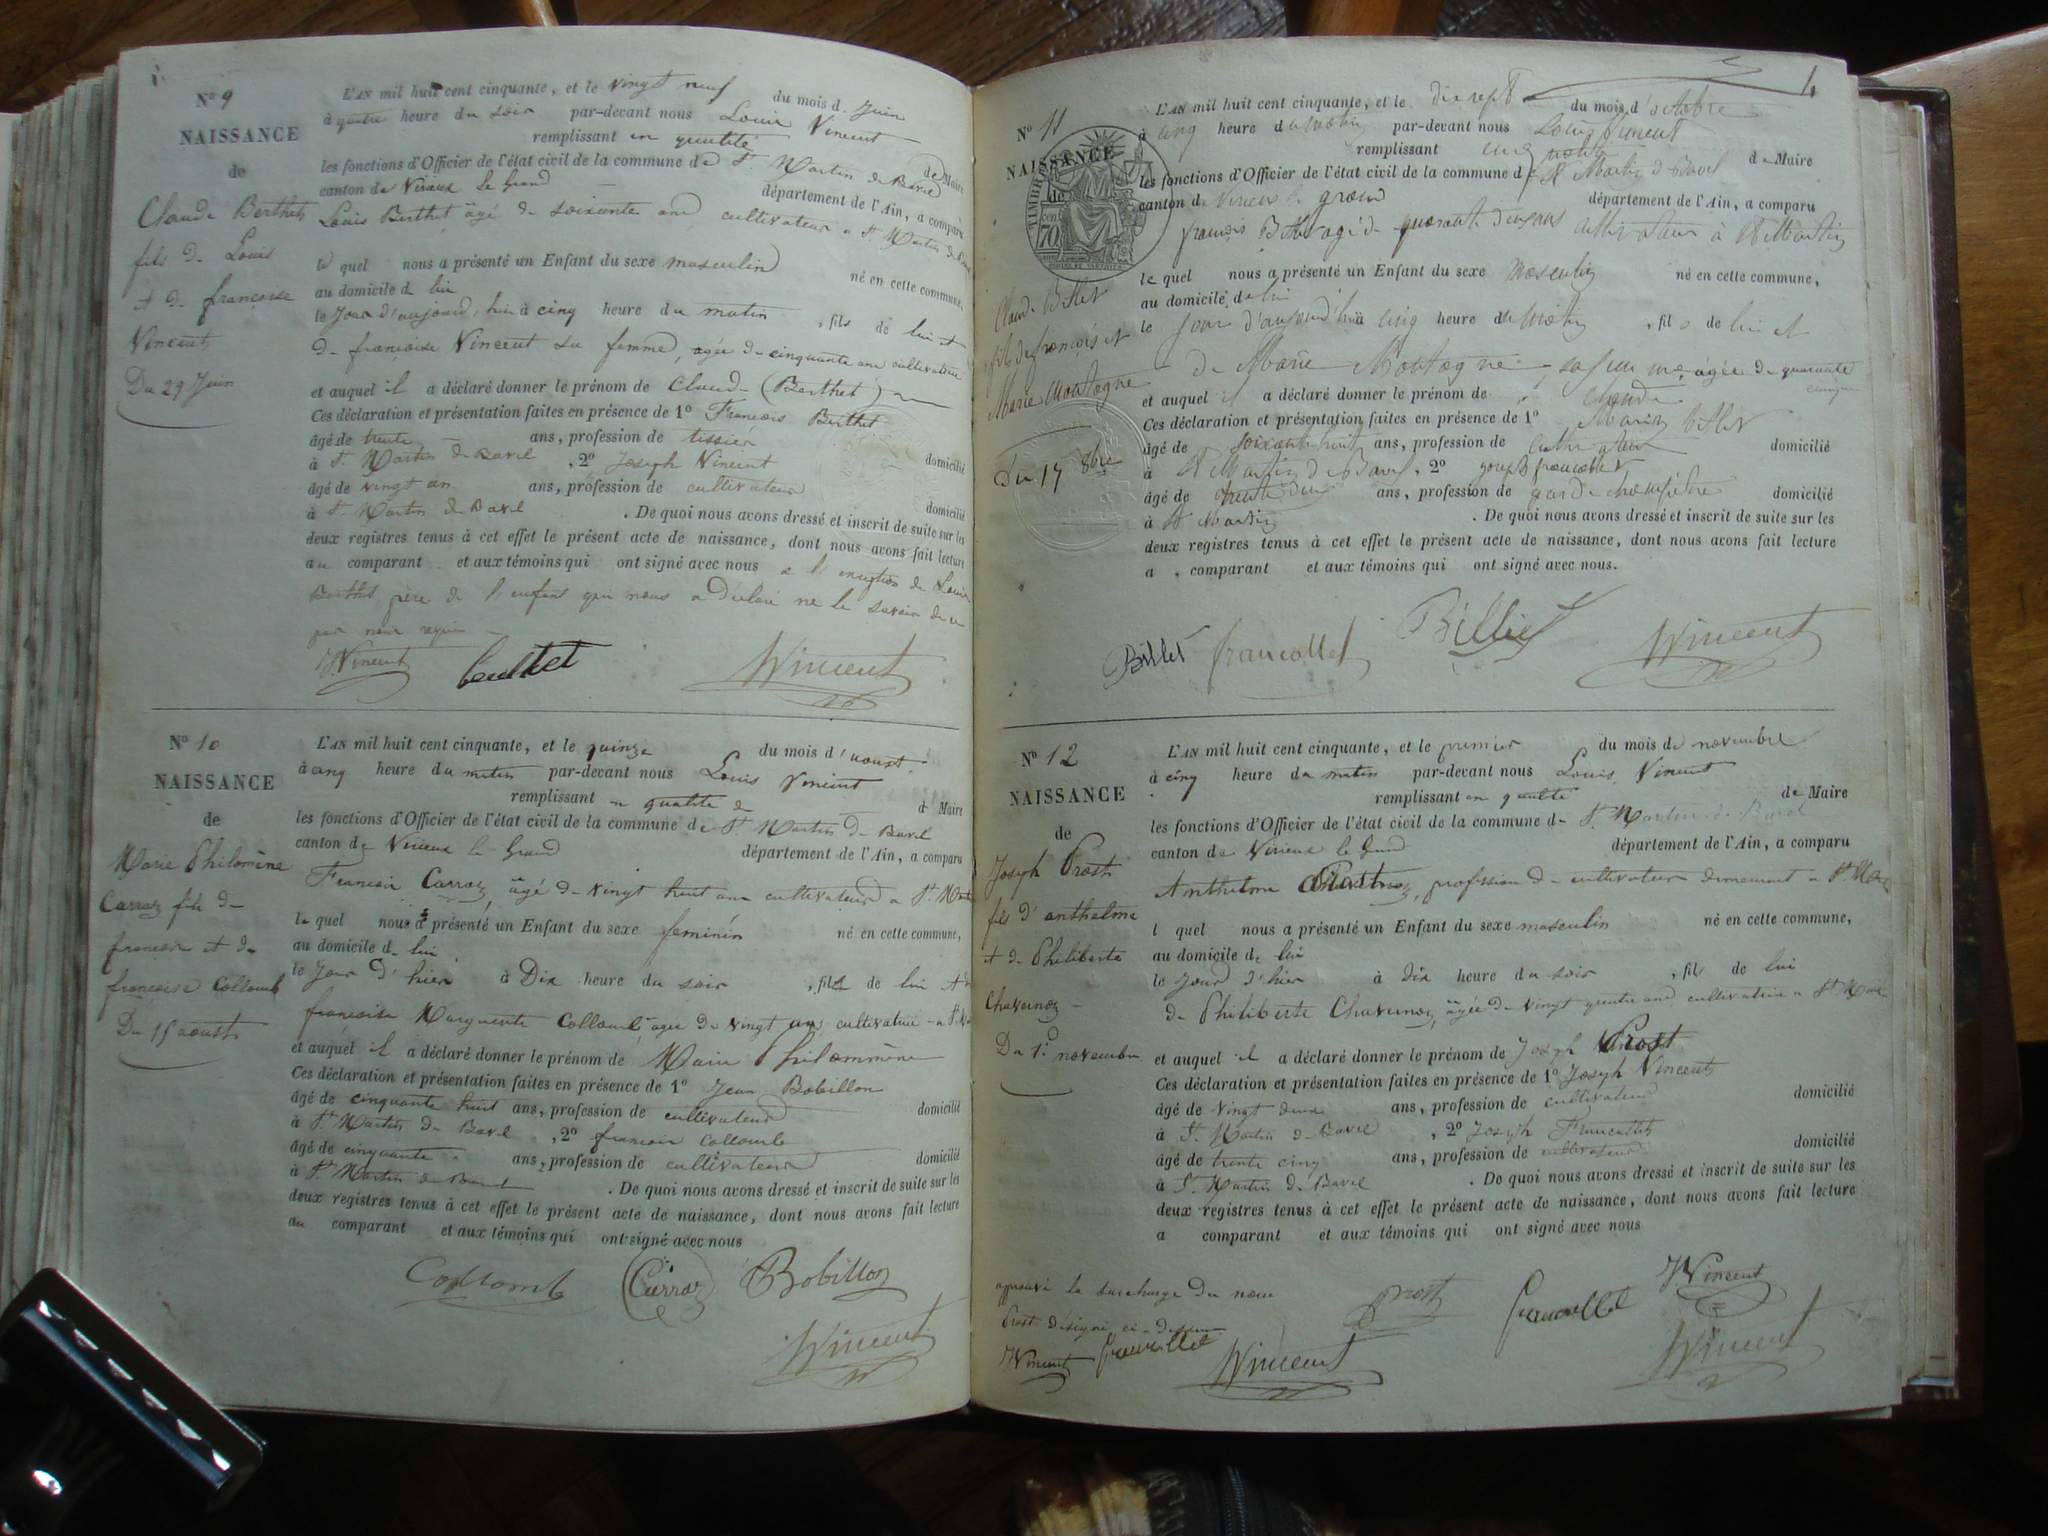 N° 9
NAISSANCE
de
Claude Berthet
fils de Louis
et de françoise
Vincent
Du 29 Juin
L'AN mil huit cent cinquante, et le vingt neuf du mois d. Juin
à quatre heure du soir par-devant nous Louis Vincent
remplissant en qualité de Maire
les fonctions d'Officier de l'état civil de la commune de St. Martin de Bavel
canton de Virieux Le Grand département de l'Ain, a comparu
Louis Berthet âgé de soixante ans cultivateur a St. Martin de
le quel nous a présenté un Enfant du sexe masculin né en cette commune,
au domicile de lui
le Jour d'aujourd'hui à cinq heure du matin , fils de lui et
de françoise Vincent sa femme, agée de cinquante ans cultivatrice
et auquel il a déclaré donner le prénom de Claude (Berthet)
Ces déclaration et présentation faites en présence de 1° François Berthet
âgé de trente ans, profession de tissier domicilié
à St. Martin de Bavel , 2° Joseph Vincent
âgé de vingt un ans, profession de cultivateur domicilié
à St. Martin de Bavel . De quoi nous avons dressé et inscrit de suite sur les
deux registres tenus à cet effet le présent acte de naissance, dont nous avons fait lecture
au comparant et aux témoins qui ont signé avec nous a l'exception de Louis
Berthet père de l'enfant qui nous a Déclaré ne le savoir de ce
par nous requis
JVincent Berthet Vincent
N° 10
NAISSANCE
de
Marie Philomène
Carraz fils de
françois et de
françoise Collomb
Du 15 aoust
L'AN mil huit cent cinquante, et le quinze du mois d'aoust
à cinq heure du matin par-devant nous Louis Vincent
remplissant en qualité de d Maire
les fonctions d'Officier de l'état civil de la commune de St. Martin de Bavel
canton de Virieux le Grand département de l'Ain, a comparu
François Carraz, âgé de vingt huit ans cultivateur a St. Martin
le quel nous a présenté un Enfant du sexe féminin né en cette commune,
au domicile de lui
le Jour d'hier à Dix heure du soir , fils de lui et de
françoise Marguerite Collomb agée de vingt un cultivatrice a St.
et auquel il a déclaré donner le prénom de Marie Philomène
Ces déclaration et présentation faites en présence de 1° Jean Bobillon
âgé de cinquante huit ans, profession de cultivateur domicilié
à St. Martin de Bavel , 2° françois Collomb
âgé de cinquante ans, profession de cultivateur domicilié
à St. Martin de Bavel . De quoi nous avons dressé et inscrit de suite sur les
deux registres tenus à cet effet le présent acte de naissance, dont nous avons fait lecture
au comparant et aux témoins qui ont signé avec nous
Collomb Carraz Bobillon
Vincent
4
N° 11
NAISSANCE
de
TIMBRE
70
Claude Billet
fils de françois et
Marie Montagne
Du 17 8bre
L'AN mil huit cent cinquante, et le dix sept du mois d'octobre
à cinq heure du matin par-devant nous Louis Vincent
remplissant en qualité de Maire
les fonctions d'Officier de l'état civil de la commune de St Martin d Bavel
canton de Virieux le grand département de l'Ain, a comparu
françois Billet agé de quarante deux ans cultivateur à St Martin
le quel nous a présenté un Enfant du sexe Masculin né en cette commune,
au domicile de lui
le Jour d'aujourd'hui à cinq heure du matin , fils de lui et
de Marie Montagne, sa femme, agée de quarante
et auquel il a déclaré donner le prénom de Claude
Ces déclaration et présentation faites en présence de 1° Marin billet
âgé de soixante huit ans, profession de cultivateur domicilié
à St Martin de Bavel , 2° joseph francollet
âgé de trente deux ans, profession de garde champêtre domicilié
à St Martin . De quoi nous avons dressé et inscrit de suite sur les
deux registres tenus à cet effet le présent acte de naissance, dont nous avons fait lecture
a comparant et aux témoins qui ont signé avec nous.
Billet francollet Billiet Vincent
N° 12
NAISSANCE
de
Joseph Prost
fils d'anthelme
et de Philiberte
Chavernoz
Du 1er novembre
L'AN mil huit cent cinquante, et le premier du mois de novembre
à cinq heure du matin par-devant nous Louis Vincent
remplissant en qualité de Maire
les fonctions d'Officier de l'état civil de la commune de St. Martin de Bavel
canton de Virieux le Grand département de l'Ain, a comparu
Anthelme Prost, profession de cultivateur demeurant a St.
l quel nous a présenté un Enfant du sexe masculin né en cette commune,
au domicile de lui
le Jour d'hier à dix heure du soir , fils de lui
de Philiberte Chavernoz, agée de vingt quatre ans cultivatrice a St.
et auquel il a déclaré donner le prénom de Joseph Prost
Ces déclaration et présentation faites en présence de 1° Joseph Vincent
âgé de vingt deux ans, profession de cultivateur domicilié
à St. Martin de Bavel , 2° Joseph Francollet
âgé de trente cinq ans, profession de cultivateur domicilié
à St. Martin de Bavel . De quoi nous avons dressé et inscrit de suite sur les
deux registres tenus à cet effet le présent acte de naissance, dont nous avons fait lecture
a comparant et aux témoins qui ont signé avec nous
approuvé la surcharge du nom
Prost désigné ci-dessus
Prost francollet JVincent
JVincent francollet Vincent Vincent